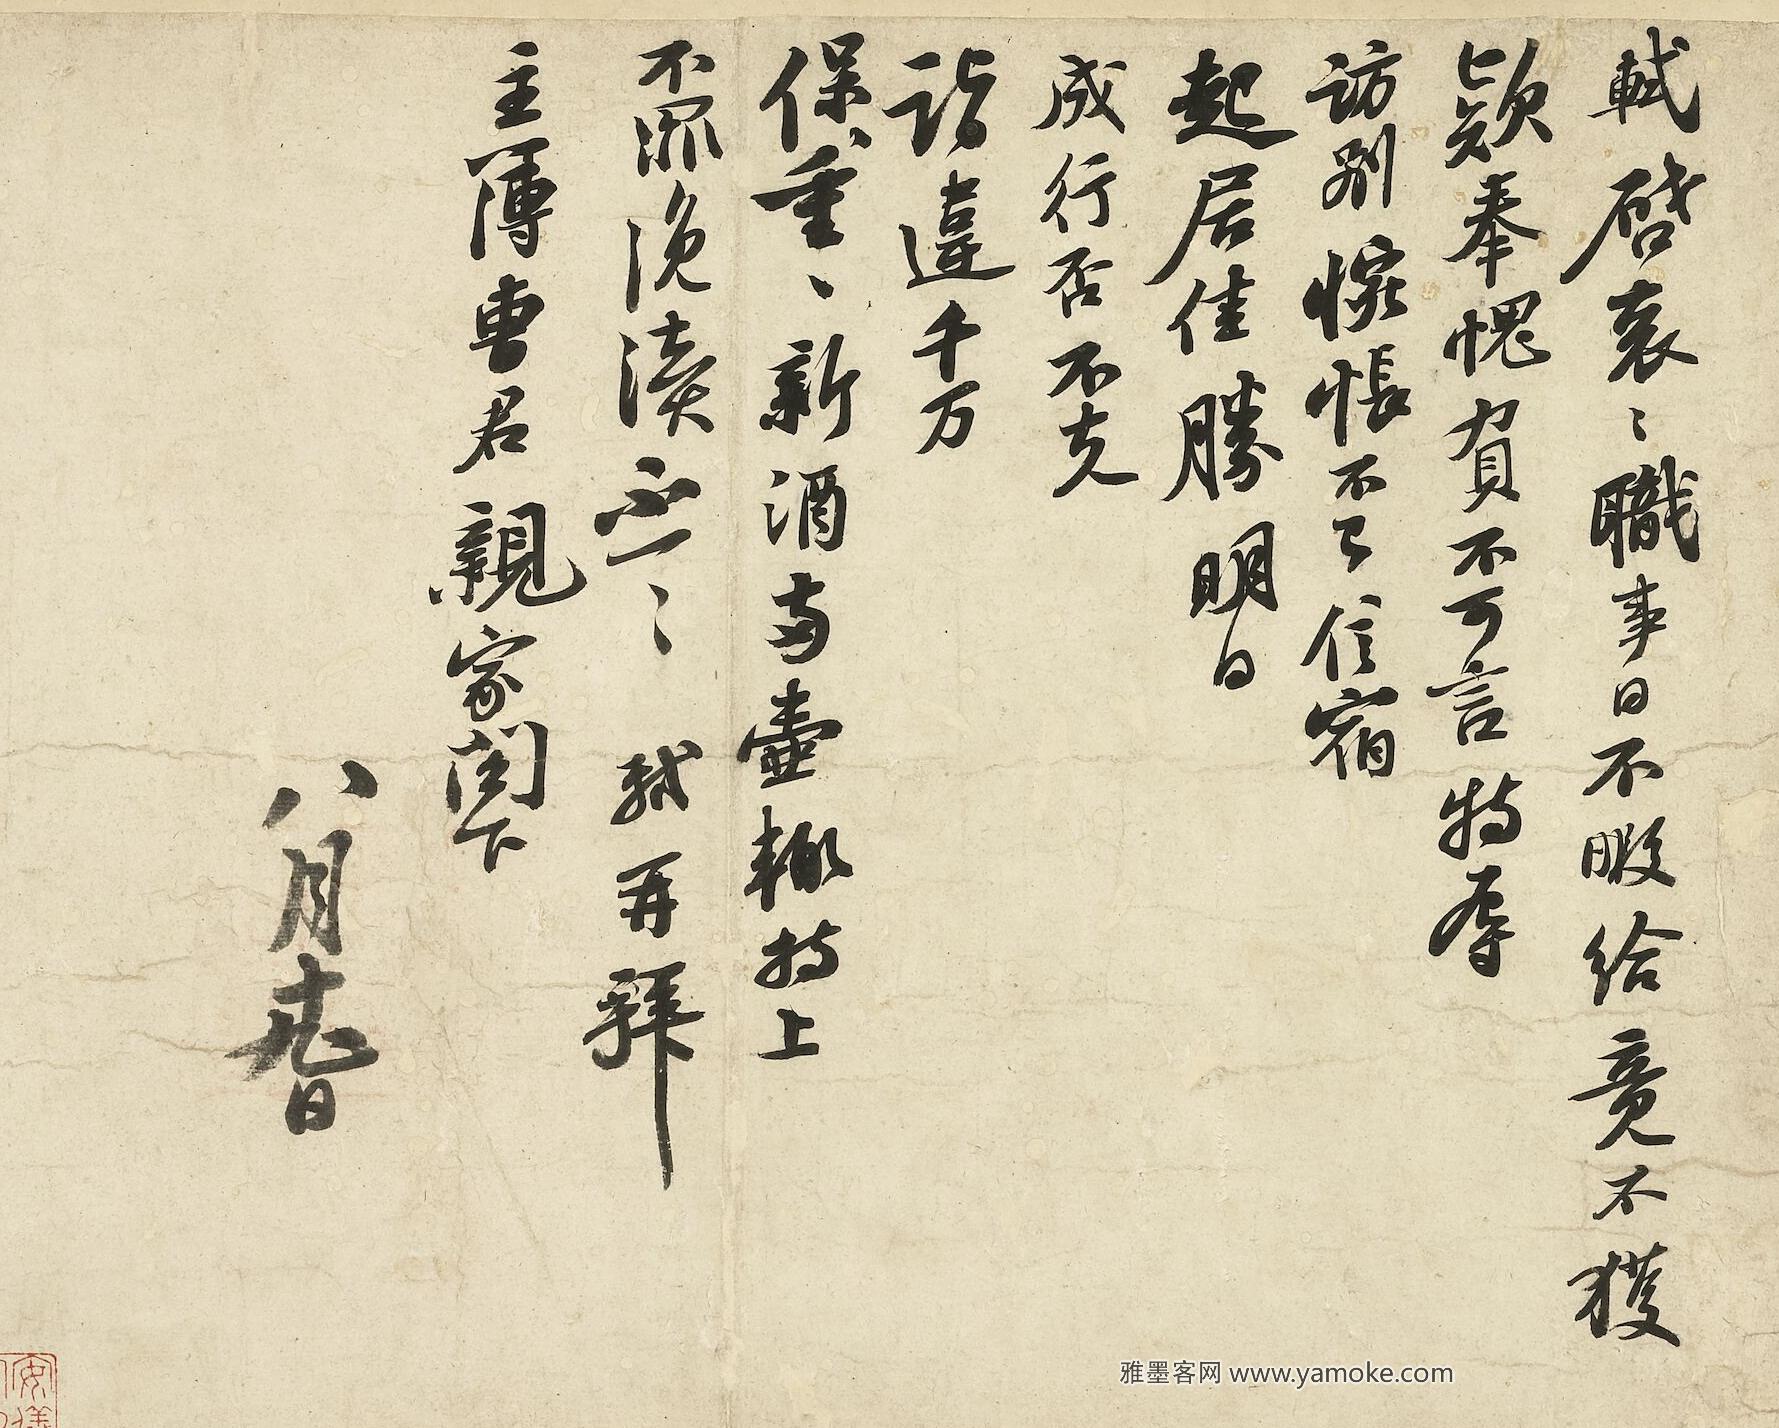 軾啓衰衰職事日不暇給竟不獲
款奉愧負不可言特辱
訪別惋悵不已信宿
起居佳勝明日
成行否不克
詣違千万
保重重新酒兩壺輙持上
不罪浼瀆不一一　軾再拜
主簿曹君親家閤下
八月十九日
雅墨客网 www.yamoke.com